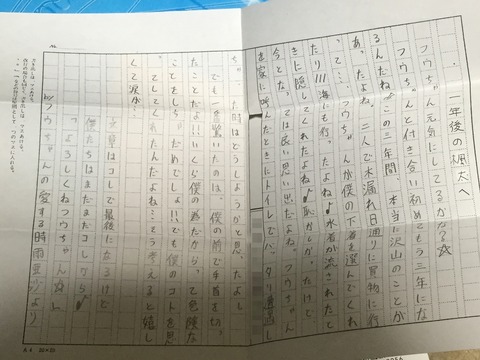 一年後の楓太へ
フウちゃん元気にしてるかな☆
フウちゃんと付き合い初めてもう三年にな
るんだね。この三年間、本当に沢山のことが
あったよね。二人で水漏れ日通りに買物に行
って…フウちゃんが僕の下着を選んでくれ
たり///海にも行ったよね♪水着が流されたと
きに隠してくれたよね♪恥かしかったけど、
今となっては良い思い出だよね。フウちゃん
を家に呼んだときにトイレでバッタリ遭遇し
ちゃった時はどうしようかと思ったよ。
でも一番驚いたのは、僕の前で手首を切っ
たことだよ…いくら僕の為だからって危険な
ことをしちゃだめでしょ!!でも僕のコトを思
ってしてくれたんだよね…そう考えると嬉し
くて涙が…
文章はコレで最後になるけど
僕たちはまだまだコレから♪
よろしくねフウちゃん
by フウちゃんの愛する時雨亜沙より
カギ出しは、マスあける。